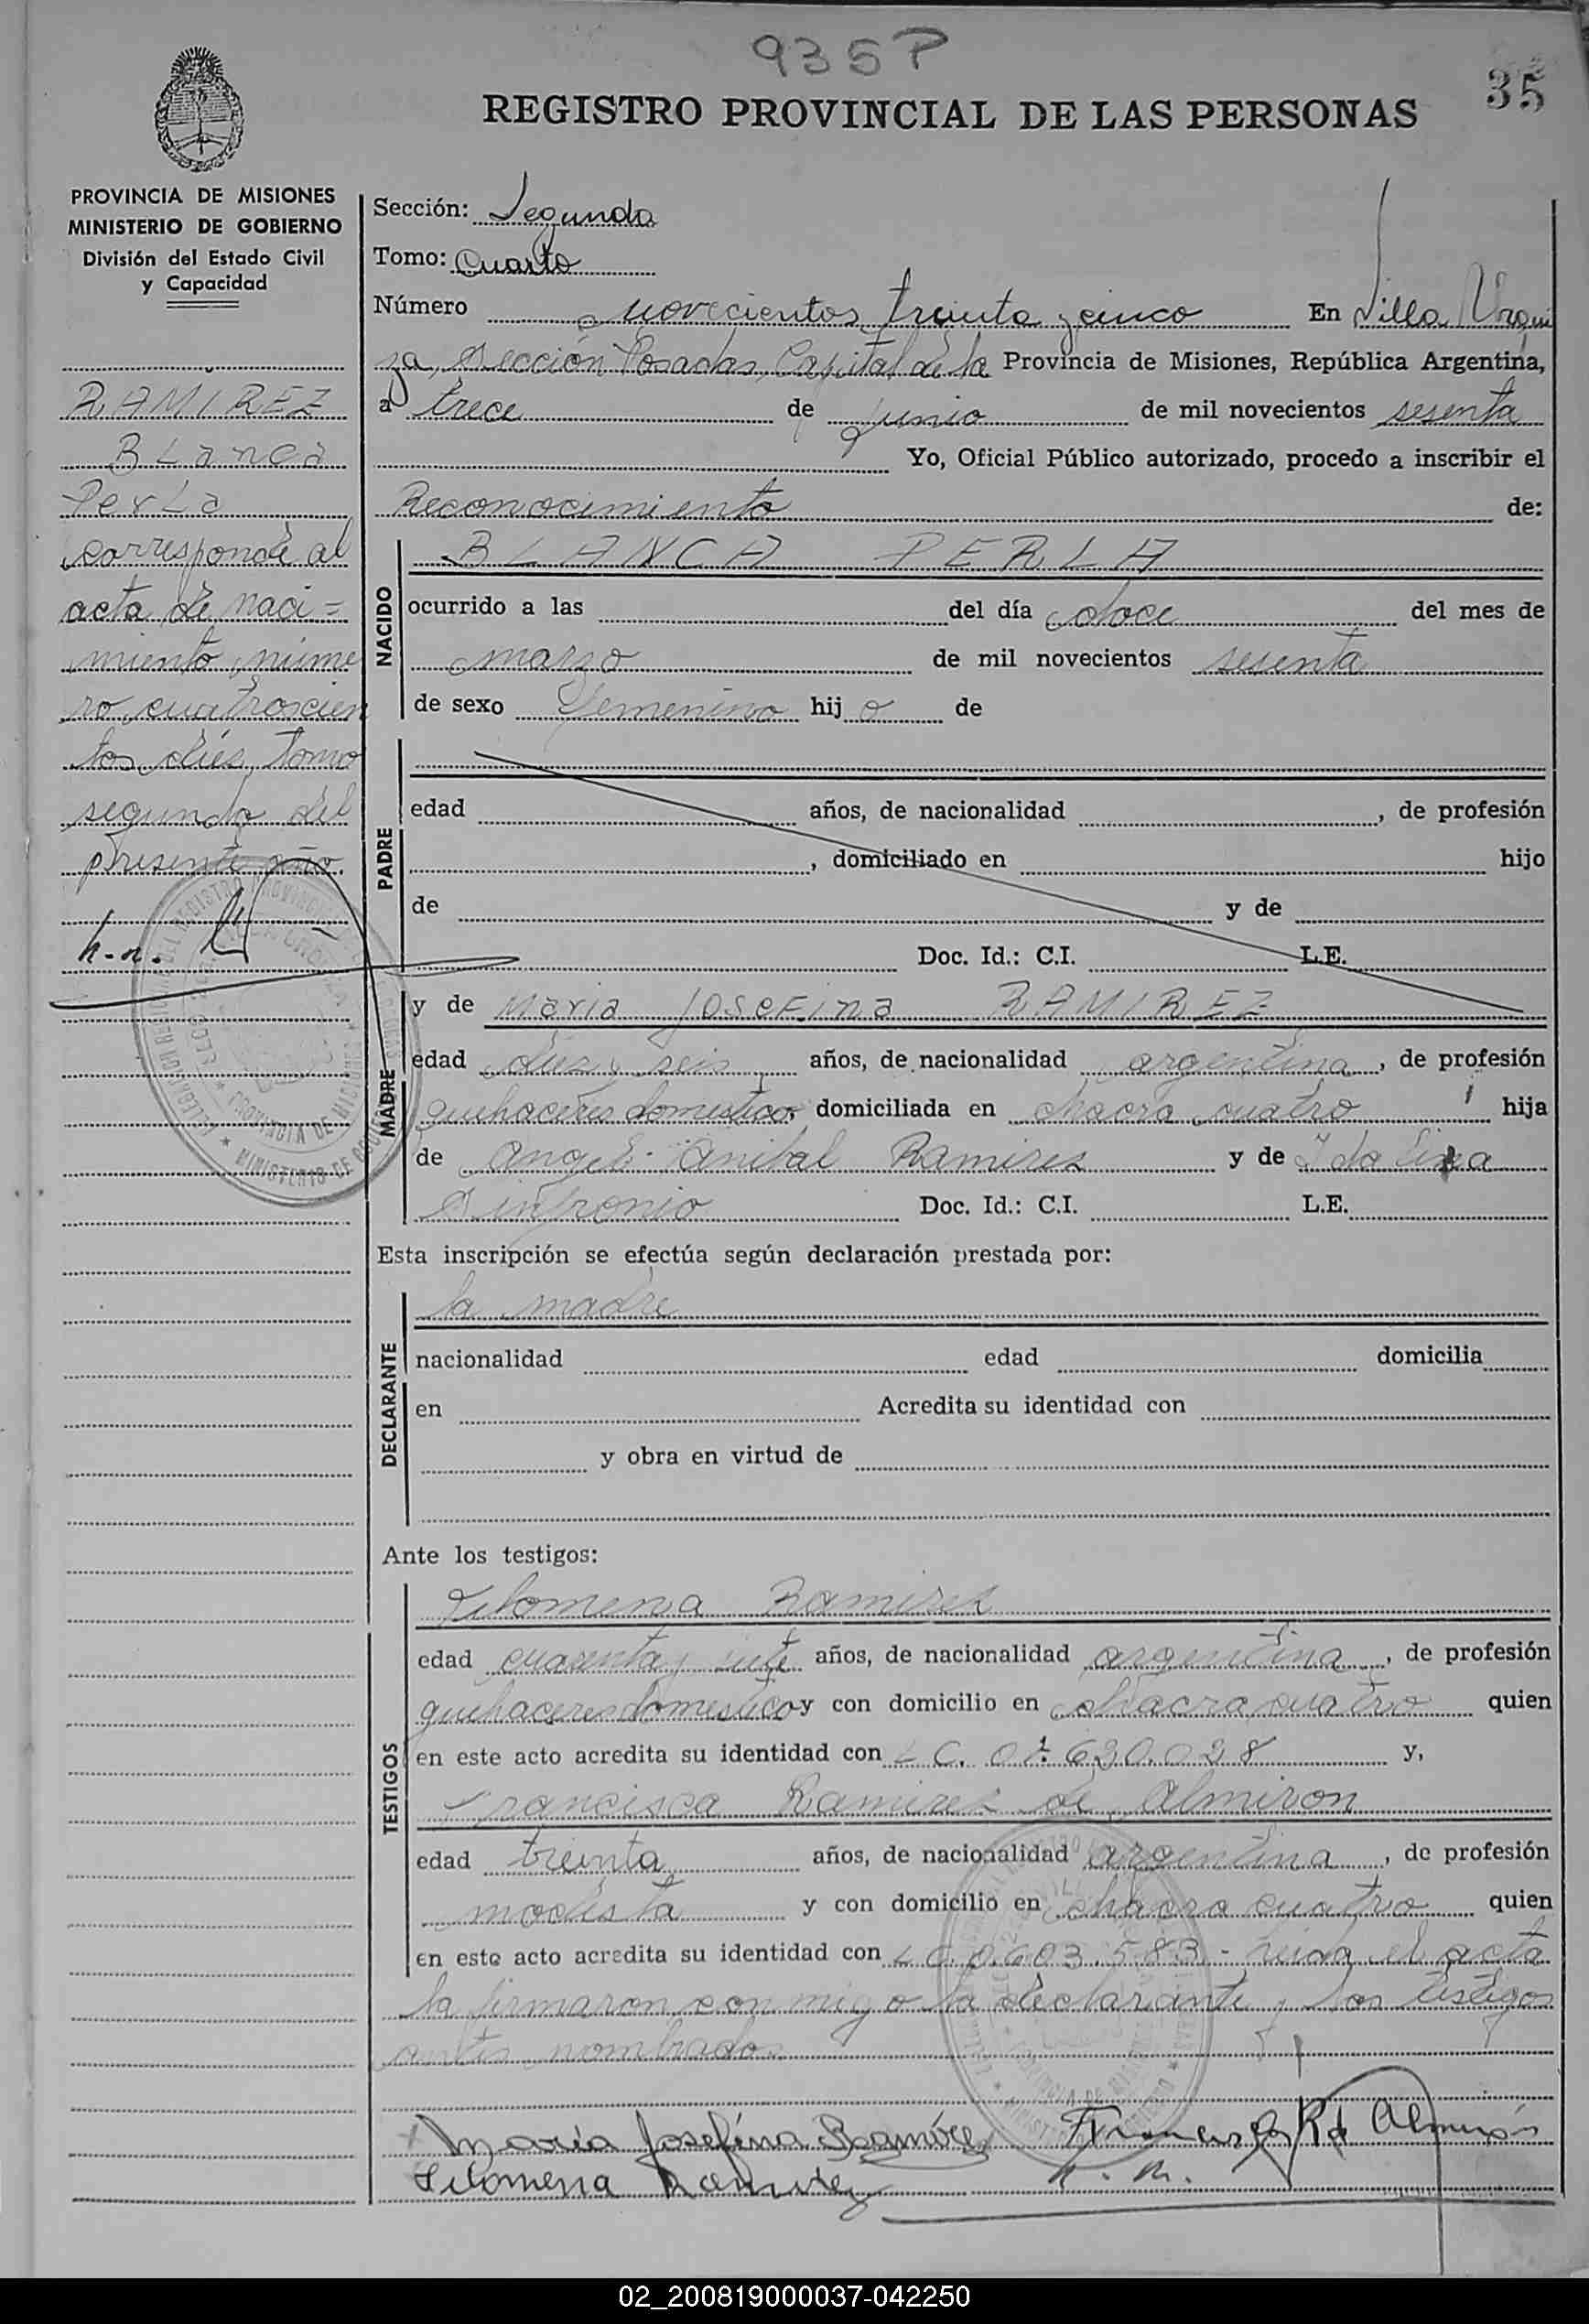 935 P
35
REGISTRO PROVINCIAL DE LAS PERSONAS
PROVINCIA DE MISIONES
MINISTERIO DE GOBIERNO
División del Estado Civil
y Capacidad
RAMIREZ
BLanca
PerLa
corresponde al
acta de naci=
miento, núme
ro cuatroscien
tos diés, tomo
segundo del
presente año.
h.n.
Sección: Segunda
Tomo: Cuarto
Número novecientos treinta y cinco En Villa Urqui
za, Sección Posadas, Capital de la Provincia de Misiones, República Argentina,
a trece de junio de mil novecientos sesenta
Yo, Oficial Público autorizado, procedo a inscribir el
Reconocimiento de:
NACIDO
BLANCA PERLA
ocurrido a las del día doce del mes de
marzo de mil novecientos sesenta
de sexo femenino hij o de
PADRE
edad años, de nacionalidad , de profesión
, domiciliado en hijo
de y de
Doc. Id.: C.I. L.E.
MADRE
y de Maria JoseFina RAMIREZ
edad diez y seis años, de nacionalidad argentina, de profesión
quehaceres domestico, domiciliada en chacra cuatro hija
de Angel Anibal Ramirez y de
Sinfronio Doc. Id.: C.I. L.E.
Esta inscripción se efectúa según declaración prestada por:
DECLARANTE
la madre
nacionalidad edad domicilia
en Acredita su identidad con
y obra en virtud de
Ante los testigos:
TESTIGOS
Filomena Ramirez
edad cuarenta y siete años, de nacionalidad argentina, de profesión
quehaceres domestico y con domicilio en chacra cuatro quien
en este acto acredita su identidad con LC. 630.028 y,
Francisca Ramirez de Almiron
edad treinta años, de nacionalidad argentina, de profesión
modista y con domicilio en chacra cuatro quien
en este acto acredita su identidad con LC 0.603.583 - Leida el acta
la firmaron conmigo la declarante y los testigos
antes nombrados
Maria Josefina Ramírez Francisca R d Almirón
Filomena Ramirez h.n.
02_200819000037-042250